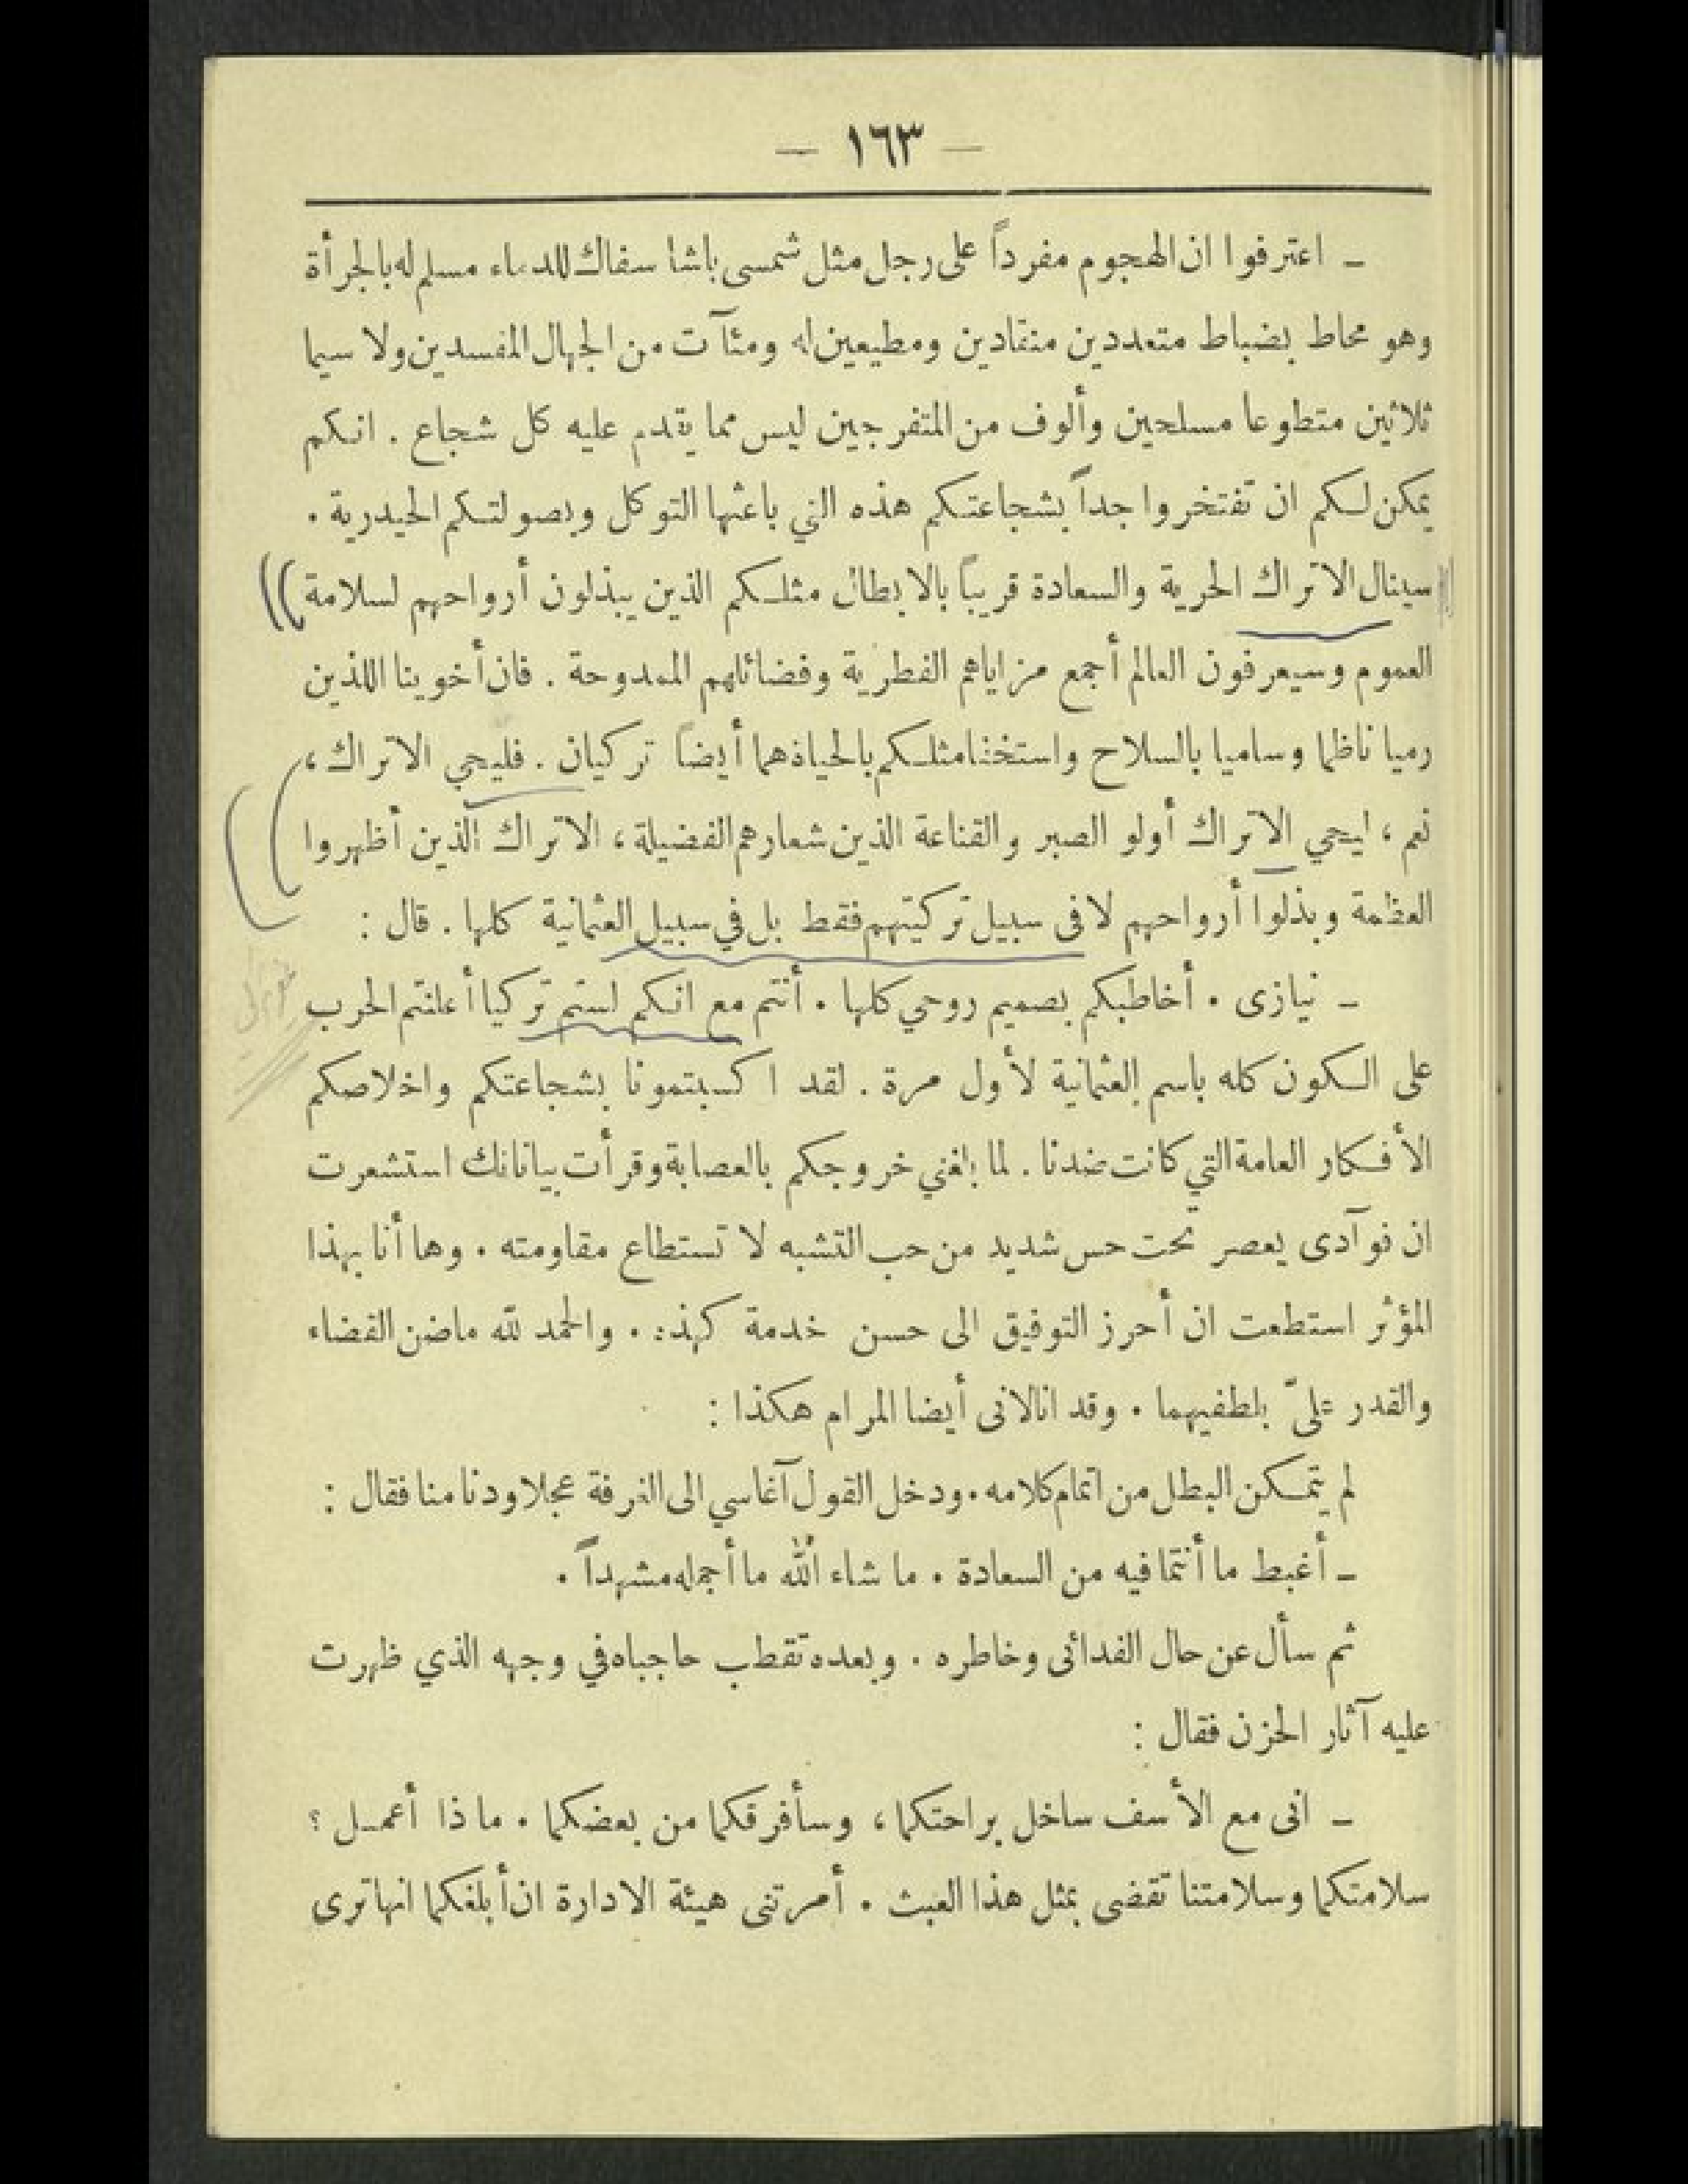 — ١٦٣ —
ـ اعترفوا ان الهجوم مفرداً على رجل مثل شمسى باشا سفاك للدماء مسلم له بالجرأة
وهو محاط بضباط متعددين منقادين ومطيعين له ومئآت من الجهال المفسدين ولا سيما
ثلاثين متطوعا مسلحين وألوف من المتفرجين ليس مما يقدم عليه كل شجاع . انكم
يمكن لكم ان تفتخروا جداً بشجاعتكم هذه التي باعثها التوكل وبصولتكم الحيدرية .
سينال الاتراك الحرية والسعادة قريباً بالابطال مثلكم الذين يبذلون أرواحهم لسلامة
العموم وسيعرفون العالم أجمع مزاياهم الفطرية وفضائلهم الممدوحة . فان أخوينا اللذين
رميا ناظما وساميا بالسلاح واستخنا مثلكم بالحياة هما أيضاً تركيان . فليحي الاتراك ،
نعم ، ليحي الاتراك أولو الصبر والقناعة الذين شعارهم الفضيلة ، الاتراك الذين أظهروا
العظمة وبذلوا أرواحهم لا فى سبيل تركيتهم فقط بل في سبيل العثمانية كلها . قال :
ـ نيازى . أخاطبكم بصميم روحي كلها . أنتم مع انكم لستم تركيا أعلنتم الحرب
على الكون كله باسم العثمانية لأول مرة . لقد اكسبتمونا بشجاعتكم واخلاصكم
الأفكار العامة التي كانت ضدنا . لما بلغني خروجكم بالعصابة وقرأت بياناتك استشعرت
ان فوآدى يعصر تحت حس شديد من حب التشبه لا تستطاع مقاومته . وها أنا بهذا
المؤثر استطعت ان أحرز التوفيق الى حسن خدمة كهذه . والحمد لله ماضن القضاء
والقدر علىّ بلطفيهما . وقد انالانى أيضا المرام هكذا :
لم يتمكن البطل من اتمام كلامه . ودخل القول آغاسي الى الغرفة عجلا ودنا منا فقال :
ـ أغبط ما أنتما فيه من السعادة . ما شاء الله ما أجمله مشهداً .
ثم سأل عن حال الفدائى وخاطره . وبعده تقطب حاجباه في وجهه الذي ظهرت
عليه آثار الحزن فقال :
ـ انى مع الأسف ساخل براحتكما ، وسأفرقكما من بعضكما . ماذا أعمل ؟
سلامتكما وسلامتنا تقضى بمثل هذا العبث . أمرتنى هيئة الادارة ان أبلغكما انها ترى